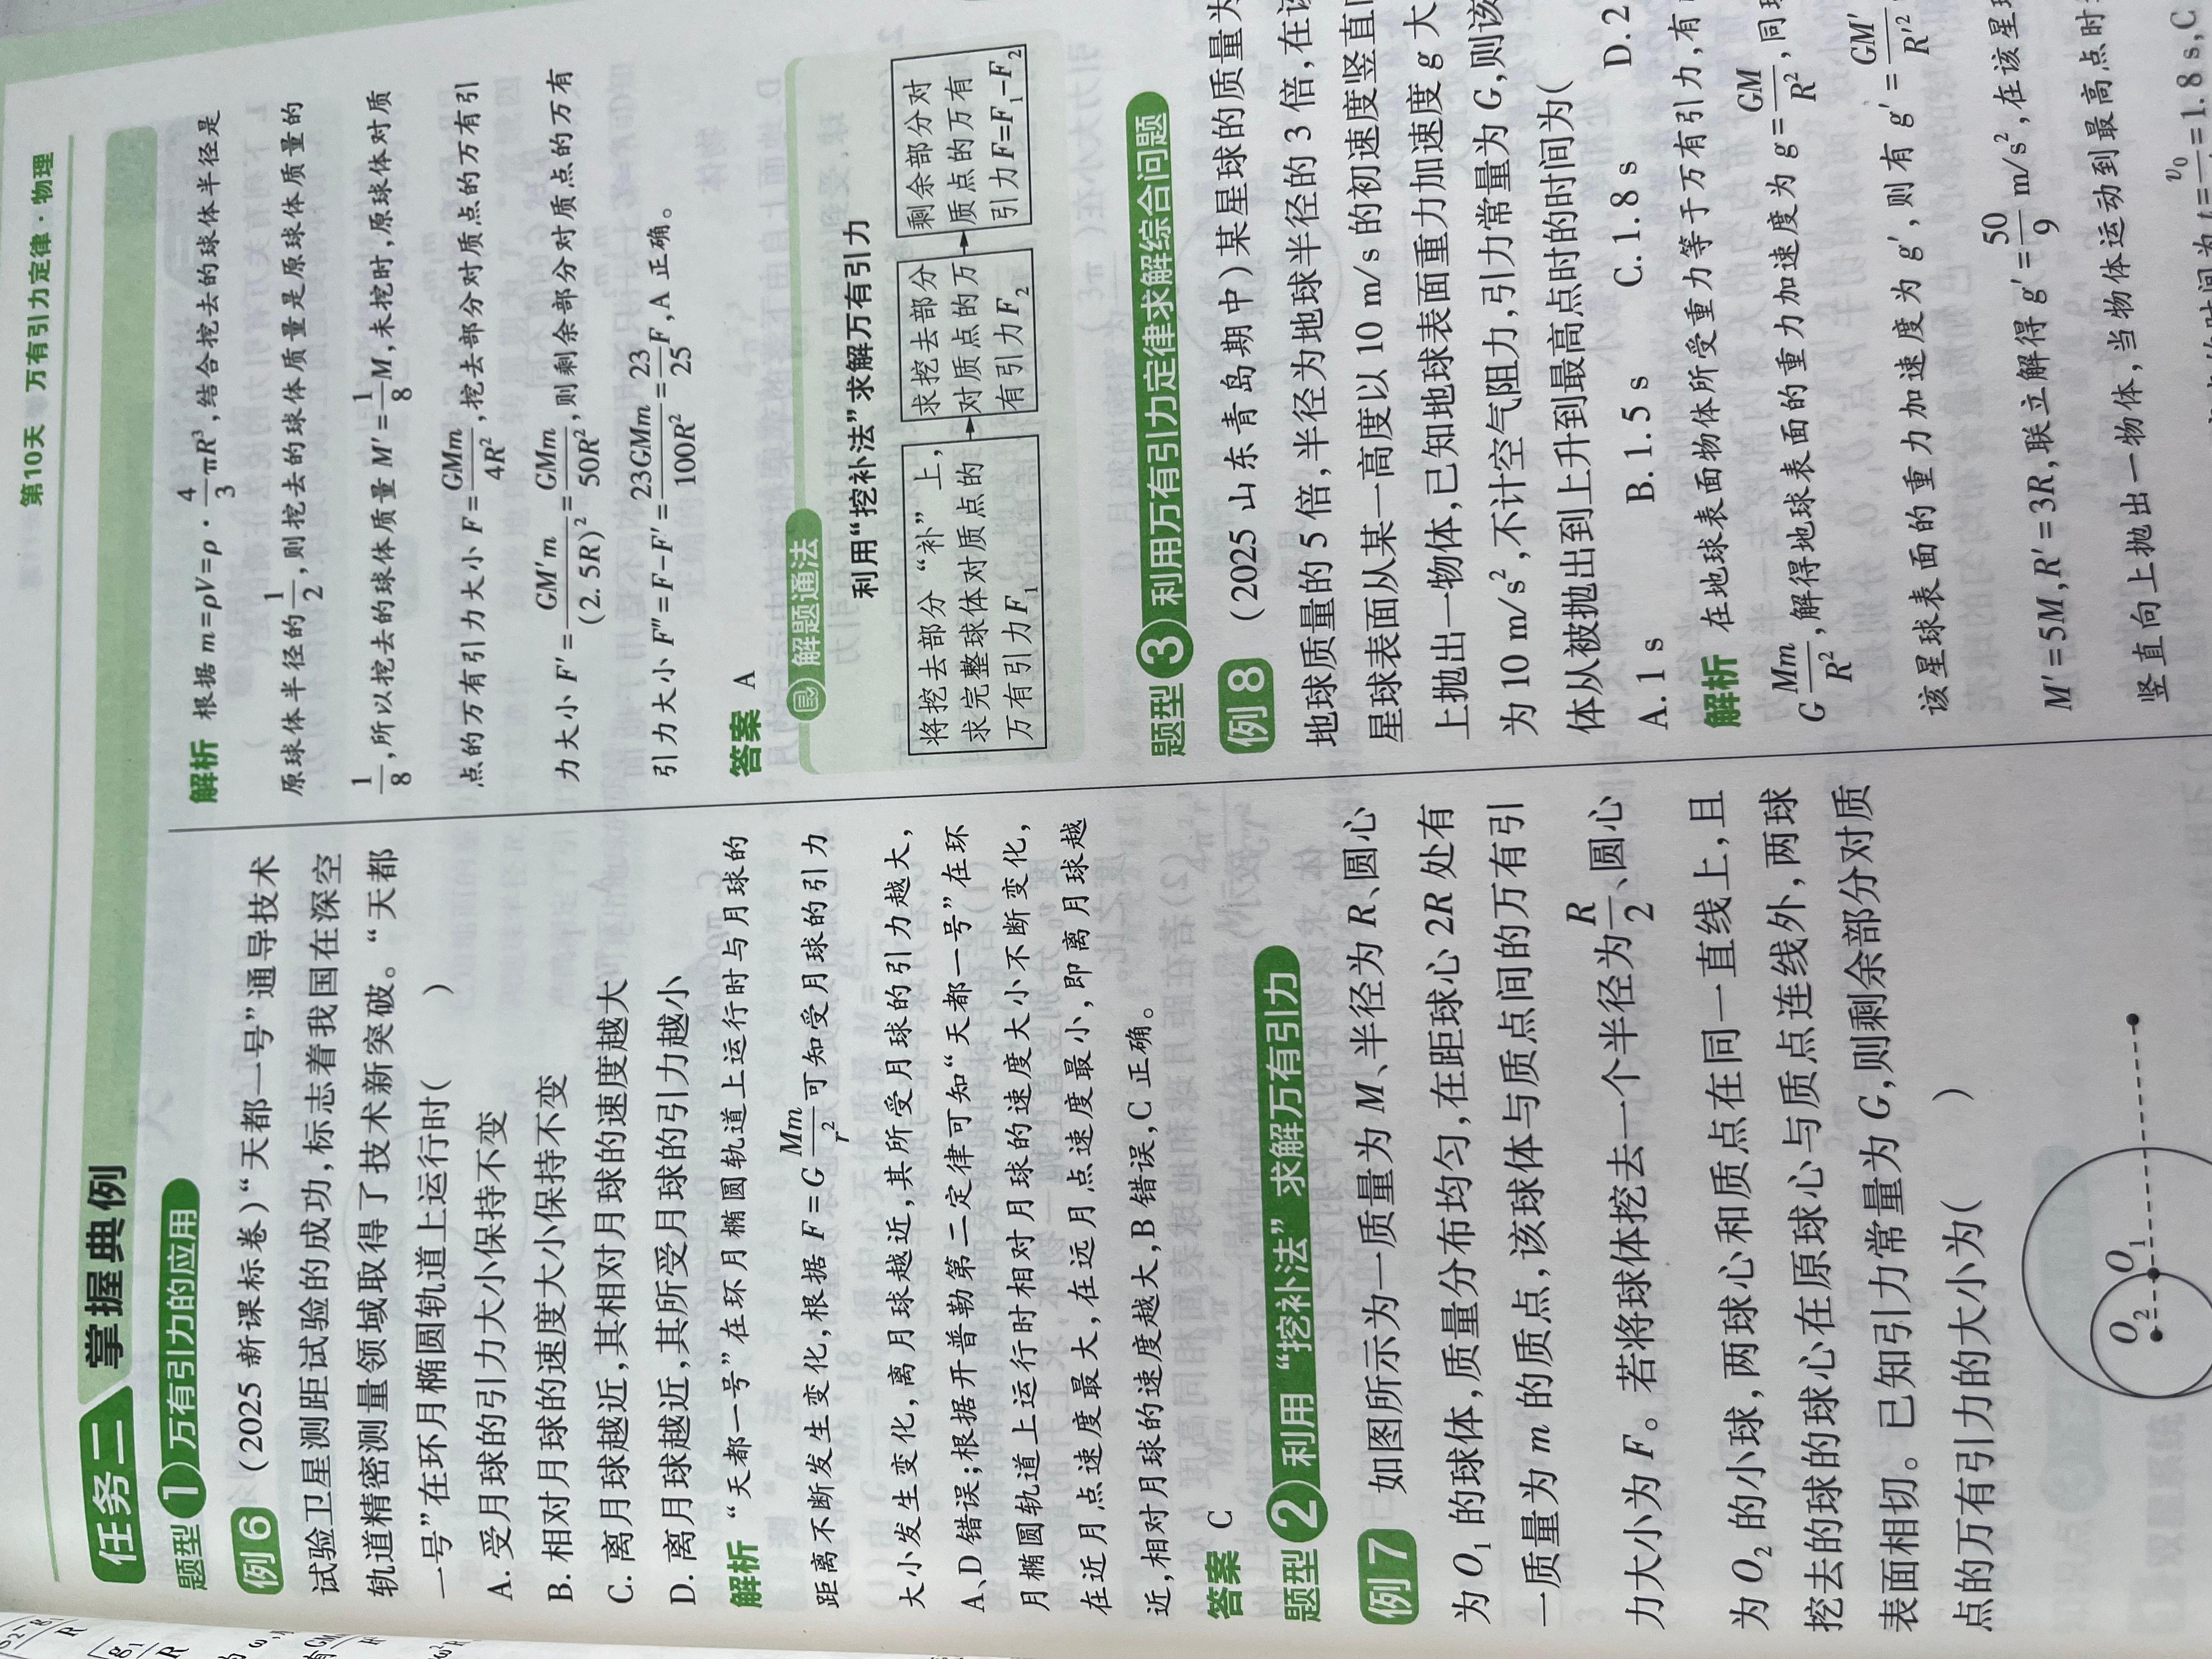 第10天 万有引力定律·物理
任务二 掌握典例
题型1 万有引力的应用
例6 (2025新课标卷)“天都一号”通导技术
试验卫星测距试验的成功,标志着我国在深空
轨道精密测量领域取得了技术新突破。“天都
一号”在环月椭圆轨道上运行时( )
A. 受月球的引力大小保持不变
B. 相对月球的速度大小保持不变
C. 离月球越近,其相对月球的速度越大
D. 离月球越近,其所受月球的引力越小
解析 “天都一号”在环月椭圆轨道上运行时与月球的
距离不断发生变化,根据F=G\frac{Mm}{r^2}可知受月球的引力
大小发生变化,离月球越近,其所受月球的引力越大,
A、D错误;根据开普勒第二定律可知“天都一号”在环
月椭圆轨道上运行时相对月球的速度大小不断变化,
在近月点速度最大,在远月点速度最小,即离月球越
近,相对月球的速度越大,B错误,C正确。
答案 C
题型2 利用“挖补法”求解万有引力
例7 如图所示为一质量为M、半径为R、圆心
为O₁的球体,质量分布均匀,在距球心2R处有
一质量为m的质点,该球体与质点间的万有引
力大小为F。若将球体挖去一个半径为\frac{R}{2}、圆心
为O₂的小球,两球心和质点在同一直线上,且
挖去的球的球心在原球心与质点连线外,两球
表面相切。已知引力常量为G,则剩余部分对质
点的万有引力的大小为( )
O₂ O₁
解析 根据m=ρV=ρ·\frac{4}{3}πR³,结合挖去的球体半径是
原球体半径的\frac{1}{2},则挖去的球体质量是原球体质量的
\frac{1}{8},所以挖去的球体质量M'=\frac{1}{8}M,未挖时,原球体对质
点的万有引力大小F=\frac{GMm}{4R^2},挖去部分对质点的万有引
力大小F'=\frac{GM'm}{(2.5R)^2}=\frac{GMm}{50R^2},则剩余部分对质点的万有
引力大小F″=F-F'=\frac{23GMm}{100R^2}=\frac{23}{25}F,A正确。
答案 A
解题通法
利用“挖补法”求解万有引力
将挖去部分“补”上,
求完整球体对质点的
万有引力F₁
求挖去部分
对质点的万
有引力F₂
剩余部分对
质点的万有
引力F=F₁-F₂
题型3 利用万有引力定律求解综合问题
例8 (2025山东青岛期中)某星球的质量为
地球质量的5倍,半径为地球半径的3倍,在该
星球表面从某一高度以10 m/s的初速度竖直
上抛出一物体,已知地球表面重力加速度g大
为10 m/s²,不计空气阻力,引力常量为G,则该
体从被抛出到上升到最高点时的时间为(
A. 1 s B. 1.5 s C. 1.8 s D. 2
解析 在地球表面物体所受重力等于万有引力,有
G\frac{Mm}{R^2},解得地球表面的重力加速度为g=\frac{GM}{R^2},同
该星球表面的重力加速度为g',则有g'=\frac{GM'}{R'^2}
M'=5M,R'=3R,联立解得g'=\frac{50}{9} m/s²,在该星
竖直向上抛出一物体,当物体运动到最高点时
时间为t=\frac{v_0}{}=1.8 s,C